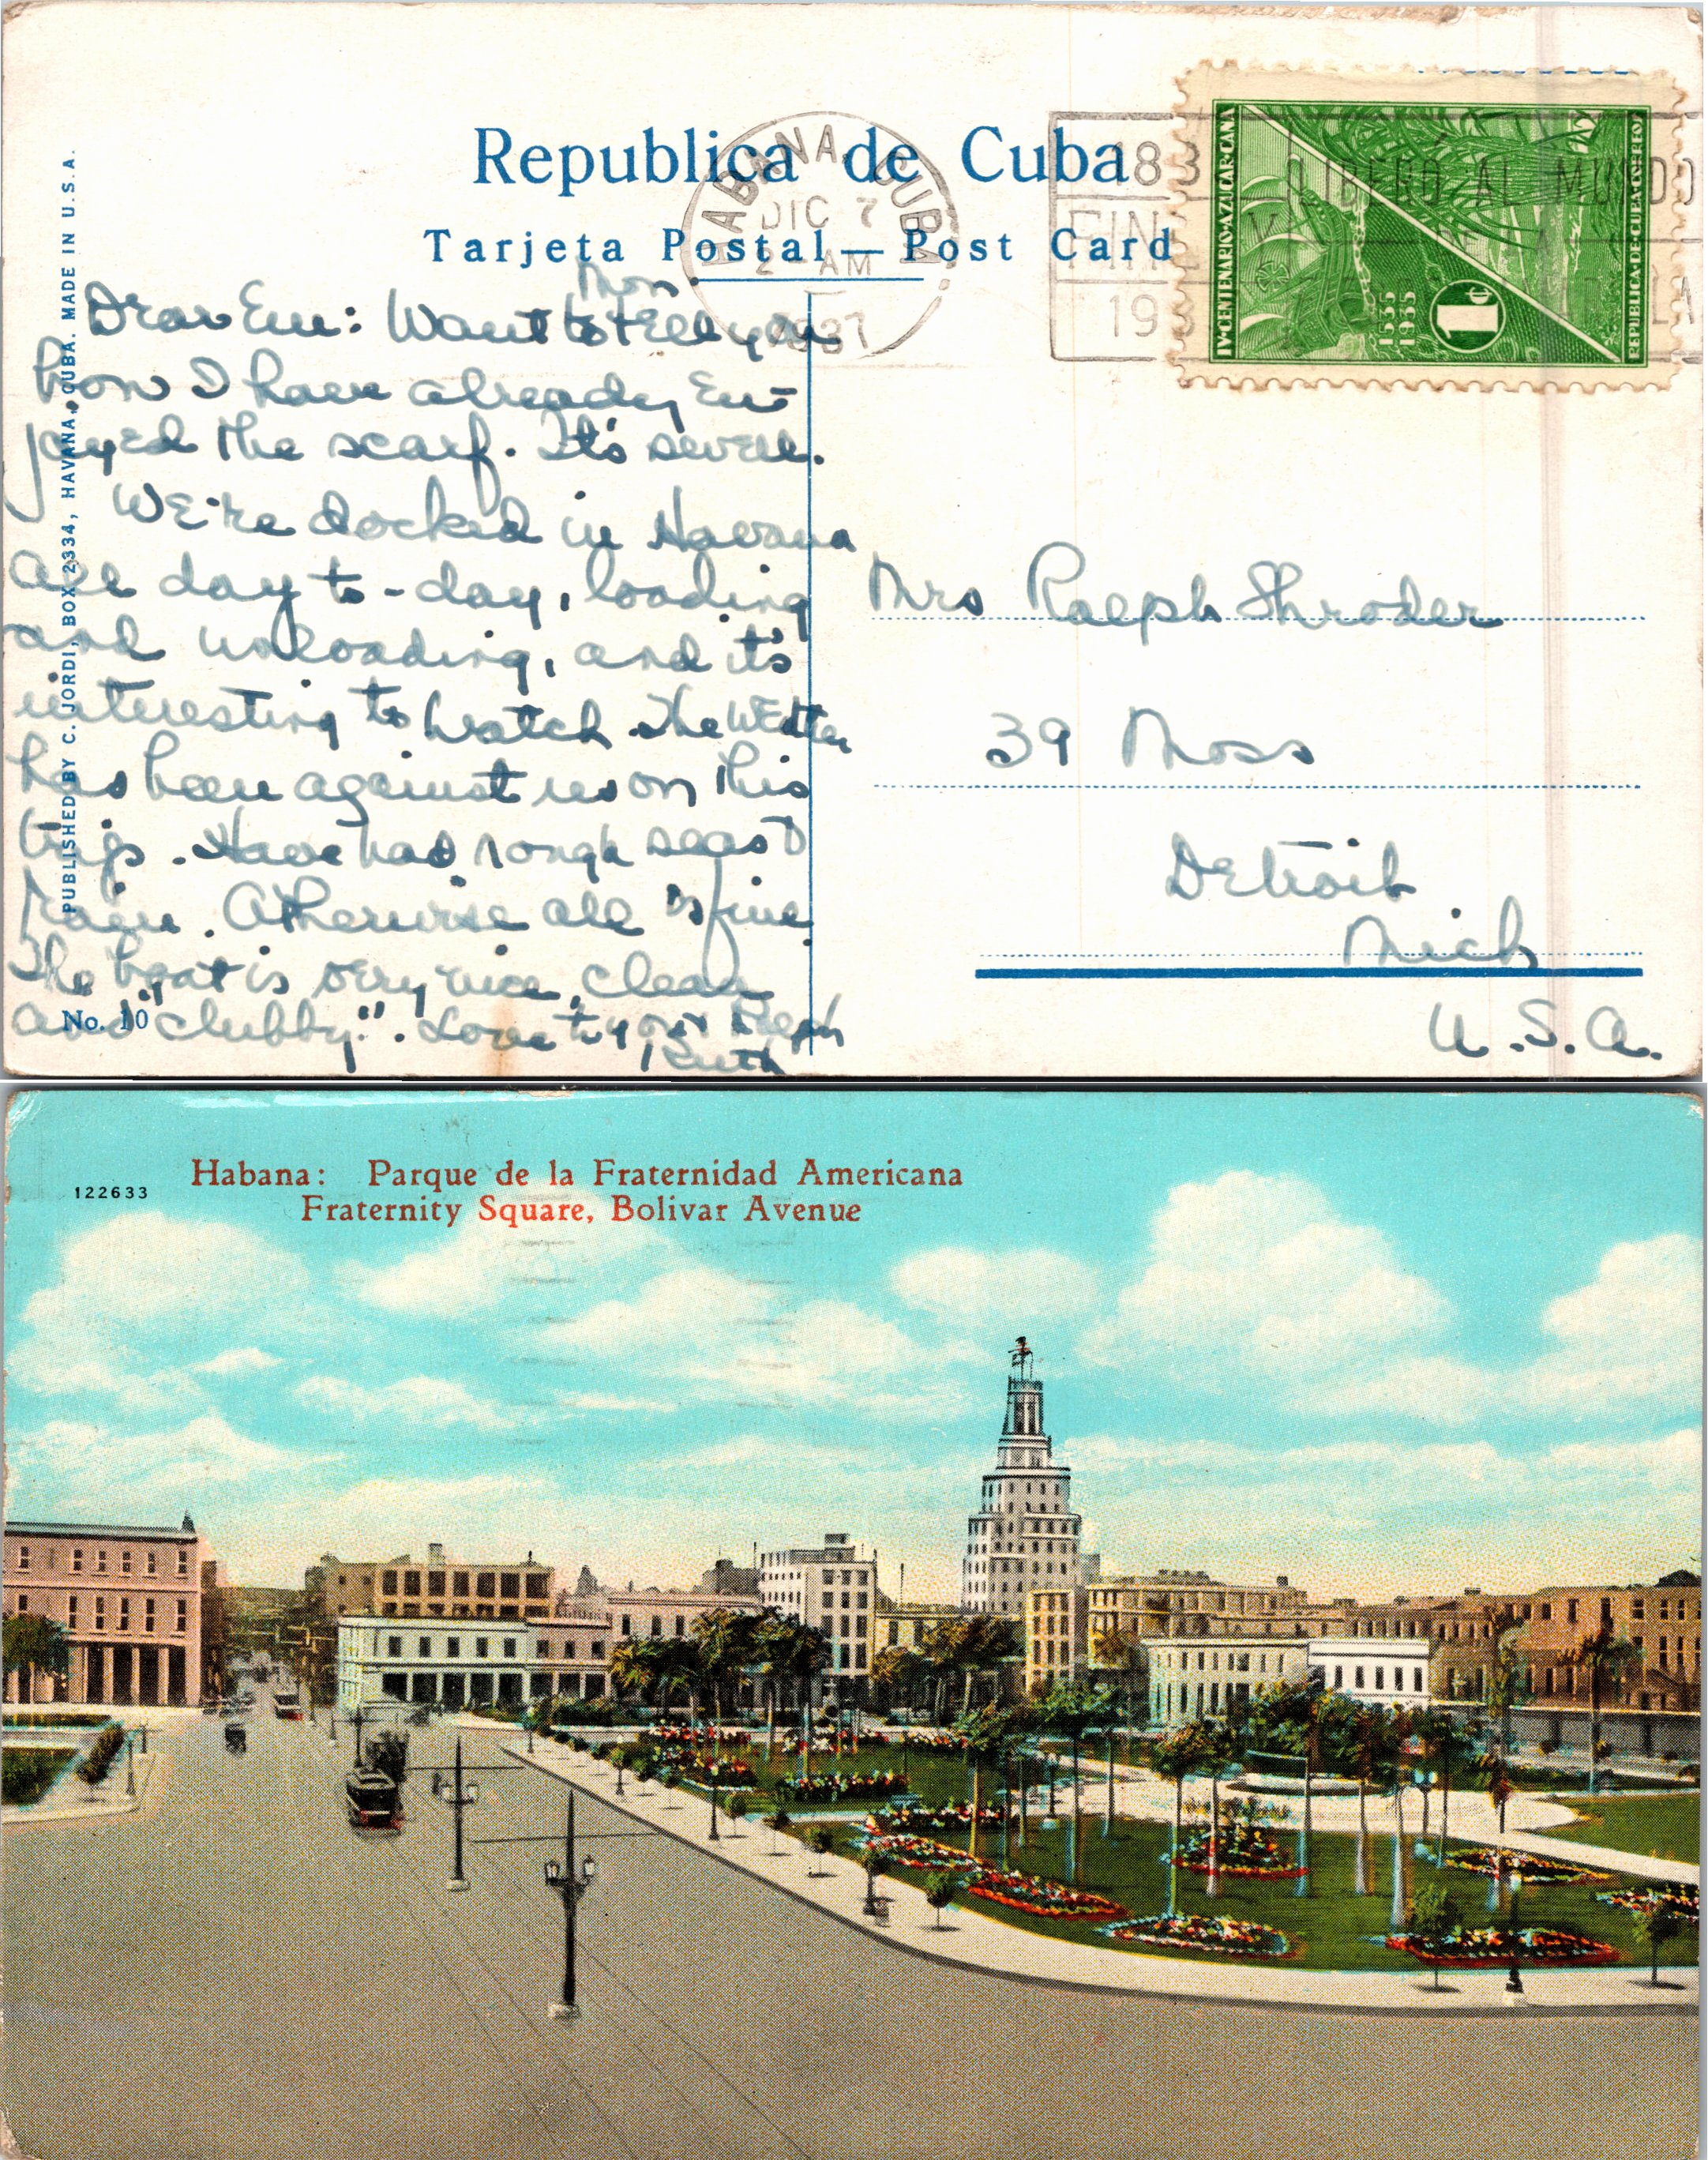 Republica de Cuba
Tarjeta Postal — Post Card
HABANA, CUBA
DIC 7
2 AM
1937
183
LIBERÓ AL MUNDO
FIN
193
IV-CENTENARIO-AZUCAR-CAÑA
1535
1935
1¢
REPUBLICA-DE-CUBA-CORREOS
PUBLISHED BY C. JORDI, BOX 2334, HAVANA, CUBA. MADE IN U.S.A.
Mon.
Dear Em: Want to tell you
how I have already en-
joyed the scarf. It's swell.
We're docked in Havana
all day to-day, loading
and unloading, and it's
interesting to watch. The weather
has been against us on this
trip. Have had rough seas &
rain. Otherwise all is fine.
The boat is very nice, clean
and "clubby". Love to you & Ralph
Ruth
No. 10
Mrs Ralph Shroder
39 Moss
Detroit
Mich
U.S.A.
122633
Habana: Parque de la Fraternidad Americana
Fraternity Square, Bolivar Avenue